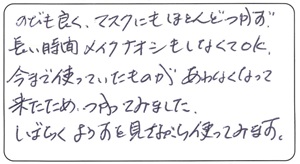 のびも良く、マスクにもほとんどつかず
長い時間メイクナオシもしなくてOK.
今まで使っていたものがあわなくなって
来たため、つかってみました.
しばらくようすを見ながら使ってみます。